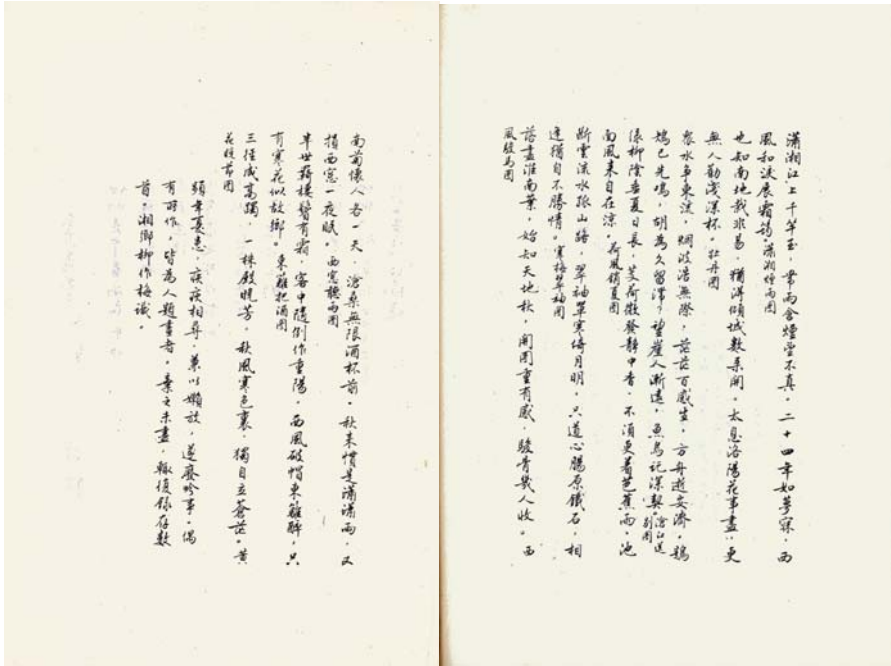 瀟湘江上千竿玉，帶雨含煙望不真，二十四年如夢寐，西
風和淚展霜筠。瀟湘煙雨圖
也知南地栽非易，獨得傾城數朵開，太息洛陽花事盡，更
無人勸淺深杯。牡丹圖
衆水爭東流，烟波浩無際，茫茫百感生，方舟逝安濟，鵾
鳩已先鳴，胡為久留滯？望崖人漸遠，魚鳥託深契。滄江送別圖
漾柳陰吾夏日長，芰荷微發靜中香，不須更著芭蕉雨，池
南風來自在涼。荷風銷夏圖
斷雲流水孤山路，翠袖單寒倚月明，只道心腸原鐵石，相
逢猶自不勝情。寒梅翠袖圖
落盡淮南葉，始知天地秋，開圖重有感，駿骨幾人收。西
風駿馬圖
南蘭懷人各一天，滄桑無限酒杯前，秋來慣是瀟瀟雨，又
損西窓一夜眠。西窓聽雨圖
半世蒋樓鬢有霜，客中隨例作重陽，西風破帽東籬醉，只
有寒花似故鄉。東籬把酒圖
三徑成高躅，一株殿晚芳，秋風寒色裏，獨自立蒼茫。黃
花晚節圖
頻年憂患，疾疢相尋，兼以嬾放，遂廢吟事，偶
有所作，皆為人題畫者，棄之未盡，輒復錄存數
首。湘鄉柳作梅識。